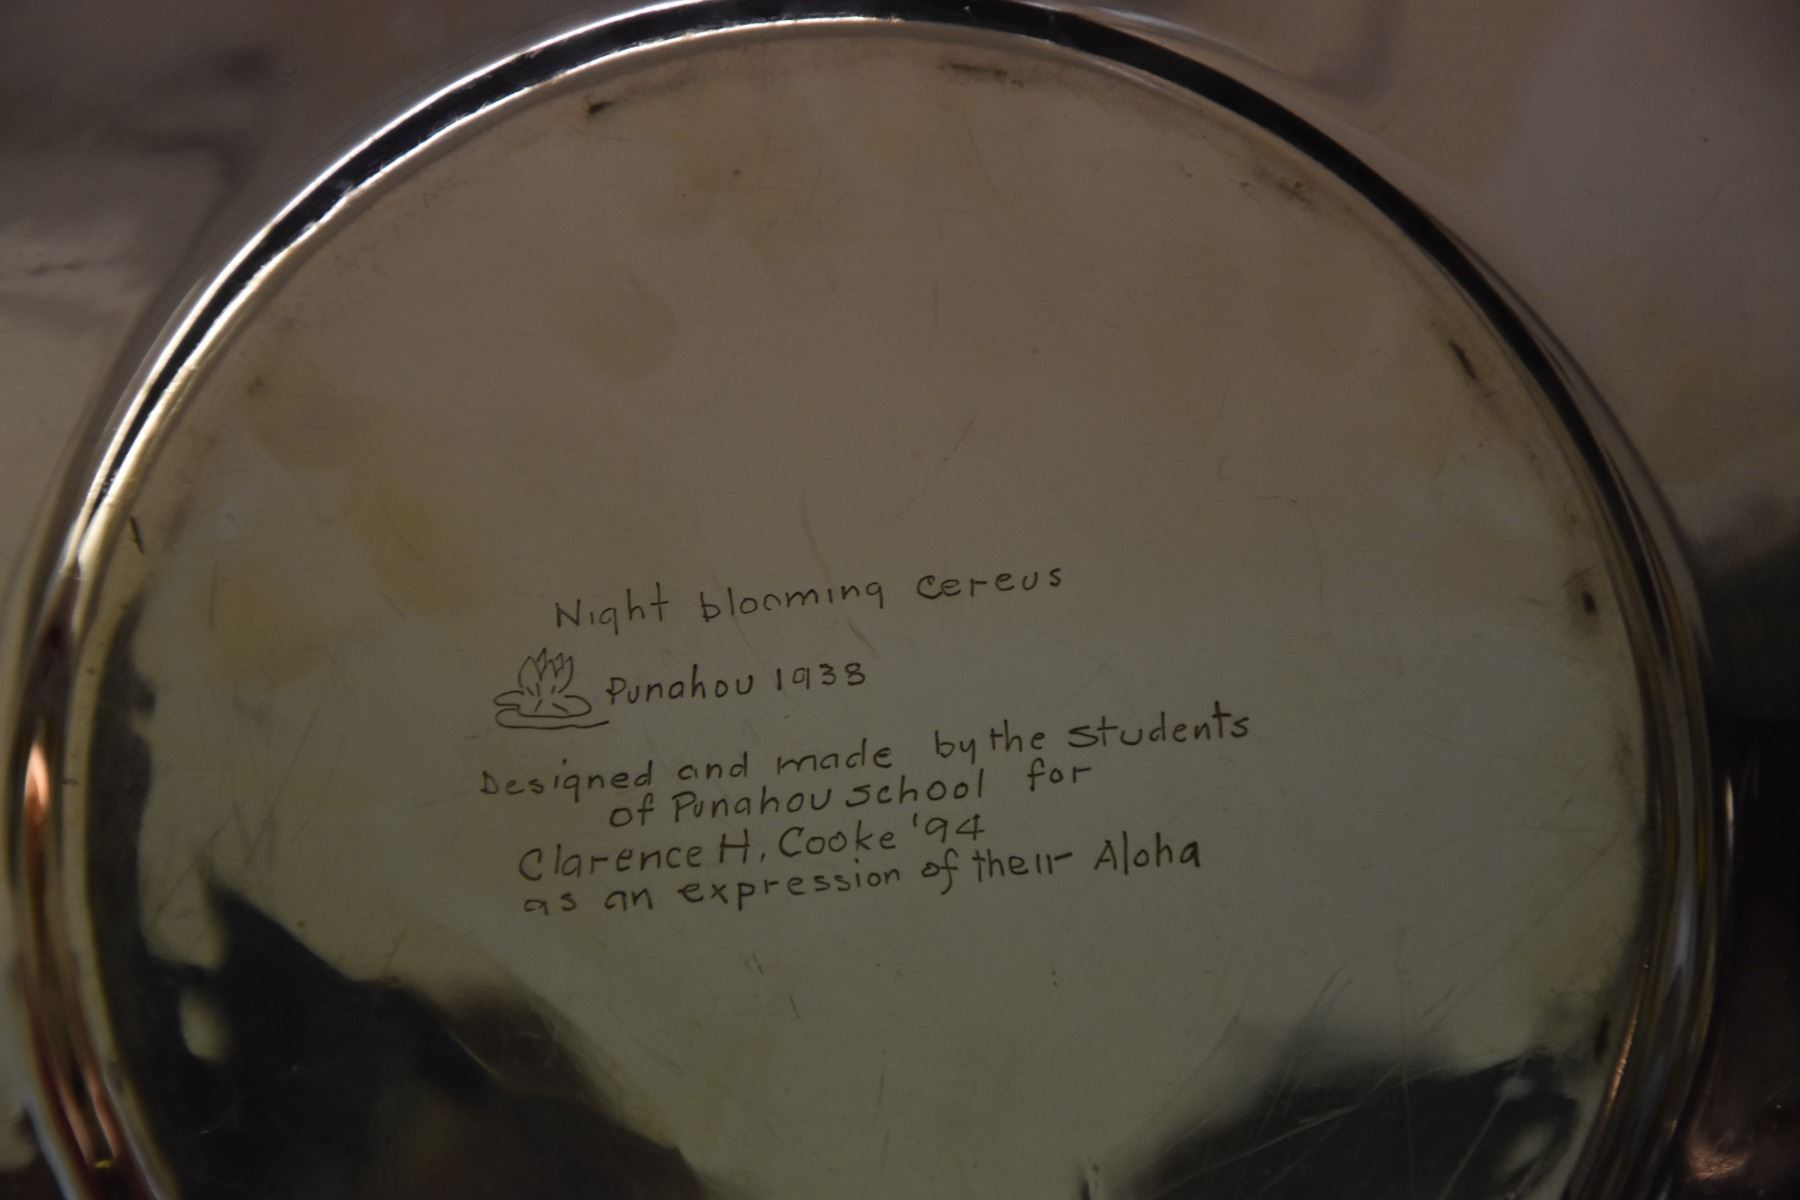 Night blooming cereus
Punahou 1938
Designed and made by the students
of Punahou school for
Clarence H. Cooke '94
as an expression of their Aloha